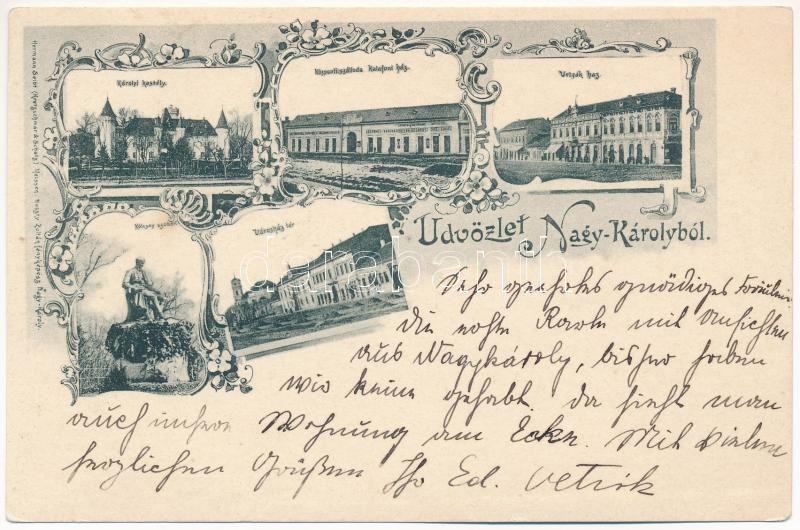 Károlyi kastély.
Központi szálloda Kalafoni ház.
Vetzák ház.
Kölcsey szobor
Városház tér
Üdvözlet Nagy-Károlyból.
darabanth
Sehr geehrtes gnädiges Fräulein.
die erste Karte mit Ansichten
aus Nagykároly, bisher haben
wir keine gehabt. da sieht man
auch unsere Wohnung am Ecke. Mit vielen
herzlichen Grüßen Ihr Ed. Vetrik